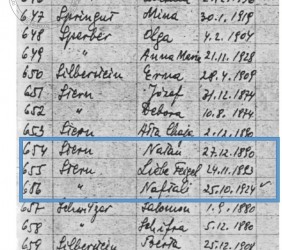 647 Springut Mina 30.1.1919
648 Sperber Olga 4.2.1904
649 " Anna Maria 21.11.1928
650 Silberstein Erna 28.4.1909
651 Stern Józef 31.12.1874
652 " Debora 10.8.1874
653 Stern 2.12.1880
654 Stern Natan 27.12.1890
655 Stern Liebe Feigel 24.11.1893
656 " Naftali 25.10.1924
657 Schwitzer Salomon 1.9.1880
658 " Schifra 5.12.1880
659 Silberstein Berta 25.12.1908